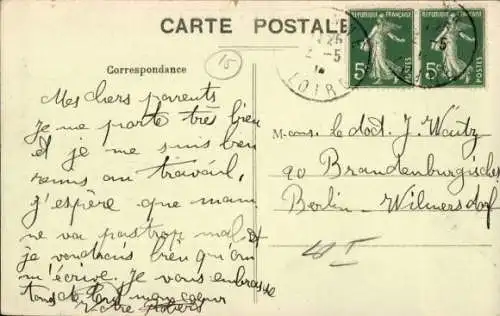 CARTE POSTALE
15
RÉPUBLIQUE FRANÇAISE
5c
POSTES
5c
POSTES
LOIRE
Correspondance
Mes chers parents
Je me porte très bien
et je me suis bien
remis au travail,
j'espère que mam
ne va pas trop mal. Et
je voudrais bien qu'on
m'écrive. Je vous embrasse
tous de tout mon coeur
Votre
Mons. le doct. J. Waitz
90 Brandenburgische
Berlin - Wilmersdorf